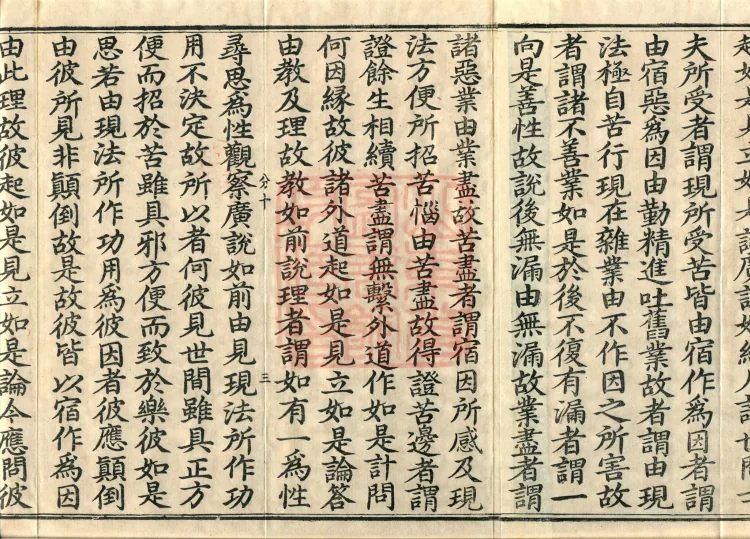 夫所受者謂現所受苦皆由宿作為因者謂
由宿惡為因由勤精進吐舊業故者謂由現
法極自苦行現在雜業由不作因之所害故
者謂諸不善業如是於後不復有漏者謂一
向是善性故說後無漏由無漏故業盡者謂
諸惡業由業盡故苦盡者謂宿因所感及現
法方便所招苦惱由苦盡故得證苦邊者謂
證餘生相續苦盡謂無繫外道作如是計問
何因緣故彼諸外道起如是見立如是論答
由教及理故教如前說理者謂如有一為性
分十 三
尋思為性觀察廣說如前由見現法所作功
用不決定故所以者何彼見世間雖具正方
便而招於苦雖具邪方便而致於樂彼如是
思若由現法所作功用為彼因者彼應顛倒
由彼所見非顛倒故是故彼皆以宿作為因
由此理故彼起如是見立如是論今應問彼